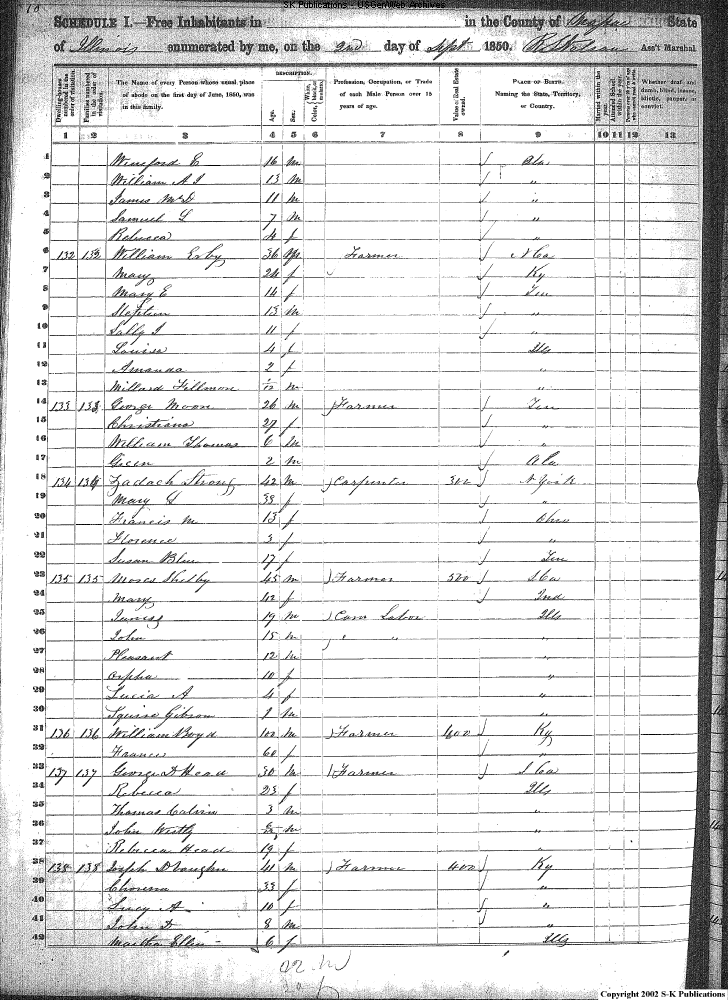 SK Publications - USGenWeb Archives
18
SCHEDULE I.—Free Inhabitants in in the County of State
of Illinois enumerated by me, on the 2nd day of Sept 1850. Ass't Marshal
Dwelling-houses numbered in the order of visitation.
Families numbered in the order of visitation.
The Name of every Person whose usual place of abode on the first day of June, 1850, was in this family.
DESCRIPTION.
Age.
Sex.
Color, White, black, or mulatto.
Profession, Occupation, or Trade of each Male Person over 15 years of age.
Value of Real Estate owned.
PLACE OF BIRTH. Naming the State, Territory, or Country.
Married within the year.
Attended School within the year.
Whether deaf and dumb, blind, insane, idiotic, pauper, or convict.
1 2 3 4 5 6 7 8 9 10 11 12 13
1 E 16 m Ala
2 William A J 13 m "
3 James McD 11 m "
4 Samuel S 7 m "
5 Rebecca 4 f "
6 132 132 William 36 m Farmer N Ca
7 Mary 24 f Ky
8 Mary E 14 f Ten
9 Stephen 13 m "
10 Sally J 11 f "
11 Louisa 4 f Ills
12 Amanda 2 f "
13 Millard Fillmore m "
14 133 133 George Moon 26 m Farmer Ten
15 Christiana 27 f "
16 William Thomas 6 m "
17 Green 2 m Ala
18 134 134 Zadach Strong 42 m Carpenter 300 N York
19 Mary S 39 f "
20 Francis M 13 f Ohio
21 Florence 3 f "
22 Susan Blue 17 f Ten
23 135 135 Moses Shelby 45 m Farmer 500 S Ca
24 Mary 42 f Ind
25 James 19 m Com Labor Ills
26 John 15 m " " "
27 Pleasant 12 m "
28 Orpha 10 f "
29 Lucia A 4 f "
30 Squire Gibson 1 m "
31 136 136 William Boyd m Farmer 400 Ky
32 Frances 60 f "
33 137 137 George D Head 30 m Farmer S Ca
34 Rebecca 23 f Ills
35 Thomas Calvin 3 m "
36 John m "
37 Rebecca Head 19 f "
38 138 138 Joseph D Vaughn 41 m Farmer 400 Ky
39 33 f "
40 Lucy A 10 f "
41 John D 8 m "
42 Martha Ellen 6 f Ills
22 m
20 f
Copyright 2002 S-K Publications